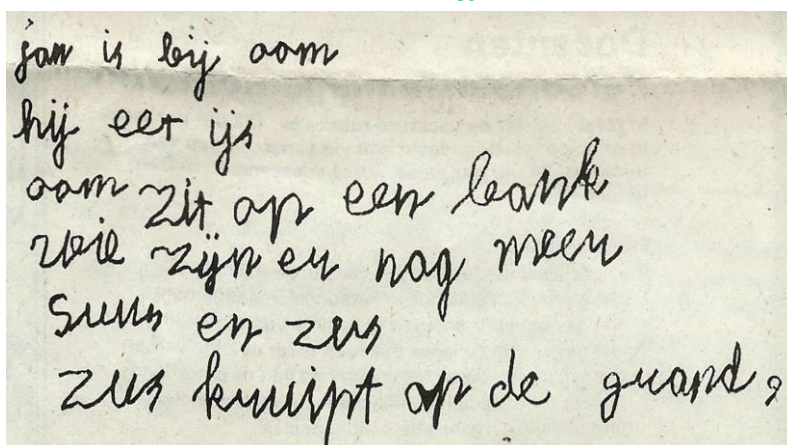 jan is bij oom
hij eet ijs
oom zit op een bank
wie zijn er nog meer
suus en zus
zus kruipt op de grond,